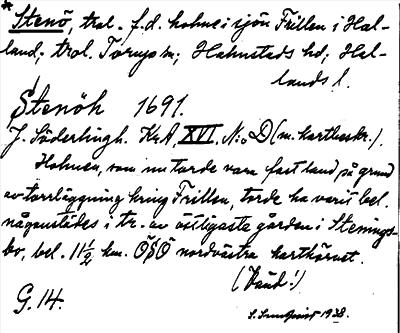 * Stenö, trol. f.d. holme i sjön Frillen i Hal-
land; trol. Torups sn; Halmstads hd; Hal-
lands l.
Stenöh 1691.
J. Söderlingh. KrA, XVI. N:o D (m. kartbeskr.).
Holmen, som nu torde vara fast land, på grund
av torrläggning kring Frillen, torde ha varit bel.
någonstädes i tr. av östligaste gården i Stenings-
bo, bel. 11 1/2 km. ÖSÖ nordvästra karthörnet.
(Vänd!)
G. 14.
S. Lundquist 1938.